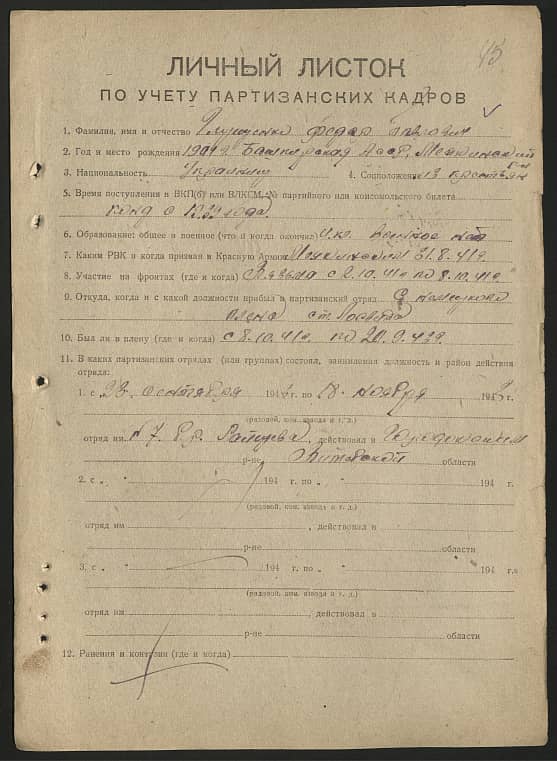 45
ЛИЧНЫЙ ЛИСТОК
ПО УЧЕТУ ПАРТИЗАНСКИХ КАДРОВ
1. Фамилия, имя и отчество Федор
2. Год и место рождения 1909 г Башкирская АССР,
3. Национальность Украинец 4. Соцположение из крестьян
5. Время поступления в ВКП(б) или ВЛКСМ, № партийного или комсомольского билета
с 1939 года
6. Образование: общее и военное (что и когда окончил)
7. Каким РВК и когда призван в Красную Армию 31.8.41 г.
8. Участие на фронтах (где и когда) Вязьма с 2.10.41 г. по 8.10.41 г.
9. Откуда, когда и с какой должности прибыл в партизанский отряд с немецкого
плена ст.
10. Был ли в плену (где и когда) с 8.10.41 г. по 20.9.43 г.
11. В каких партизанских отрядах (или группах) состоял, занимаемая должность и район действия
отряда:
1. с 23 сентября 194 г. по 18 ноября 1943
(рядовой, ком. взвода и т. д.)
отряд им. № 7 бр. Райцева, действовал в Городокским
р-не Витебской области
2. с „ 194 г. по „ 194 г.
(рядовой, ком. взвода и т. д.)
отряд им , действовал в
р-не области
3. с „ 194 г. по „ 194 г.
(рядовой, ком. взвода и т. д.)
отряд им , действовал в
р-не области
12. Ранения и контузии (где и когда)